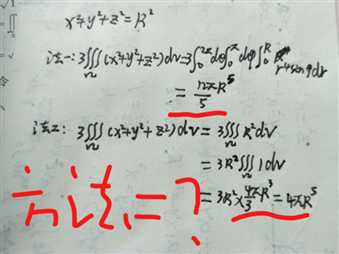 x²+y²+z²=R²
法一: 3∭(x²+y²+z²)dv=3∫₀^2π dθ∫₀^π dφ∫₀^R r⁴sinφdr
= 12πR⁵/5
法2: 3∭(x²+y²+z²)dv = 3∭R²dv
= 3R²∭1dv
= 3R²×4π/3 R³=4πR⁵
方法二?